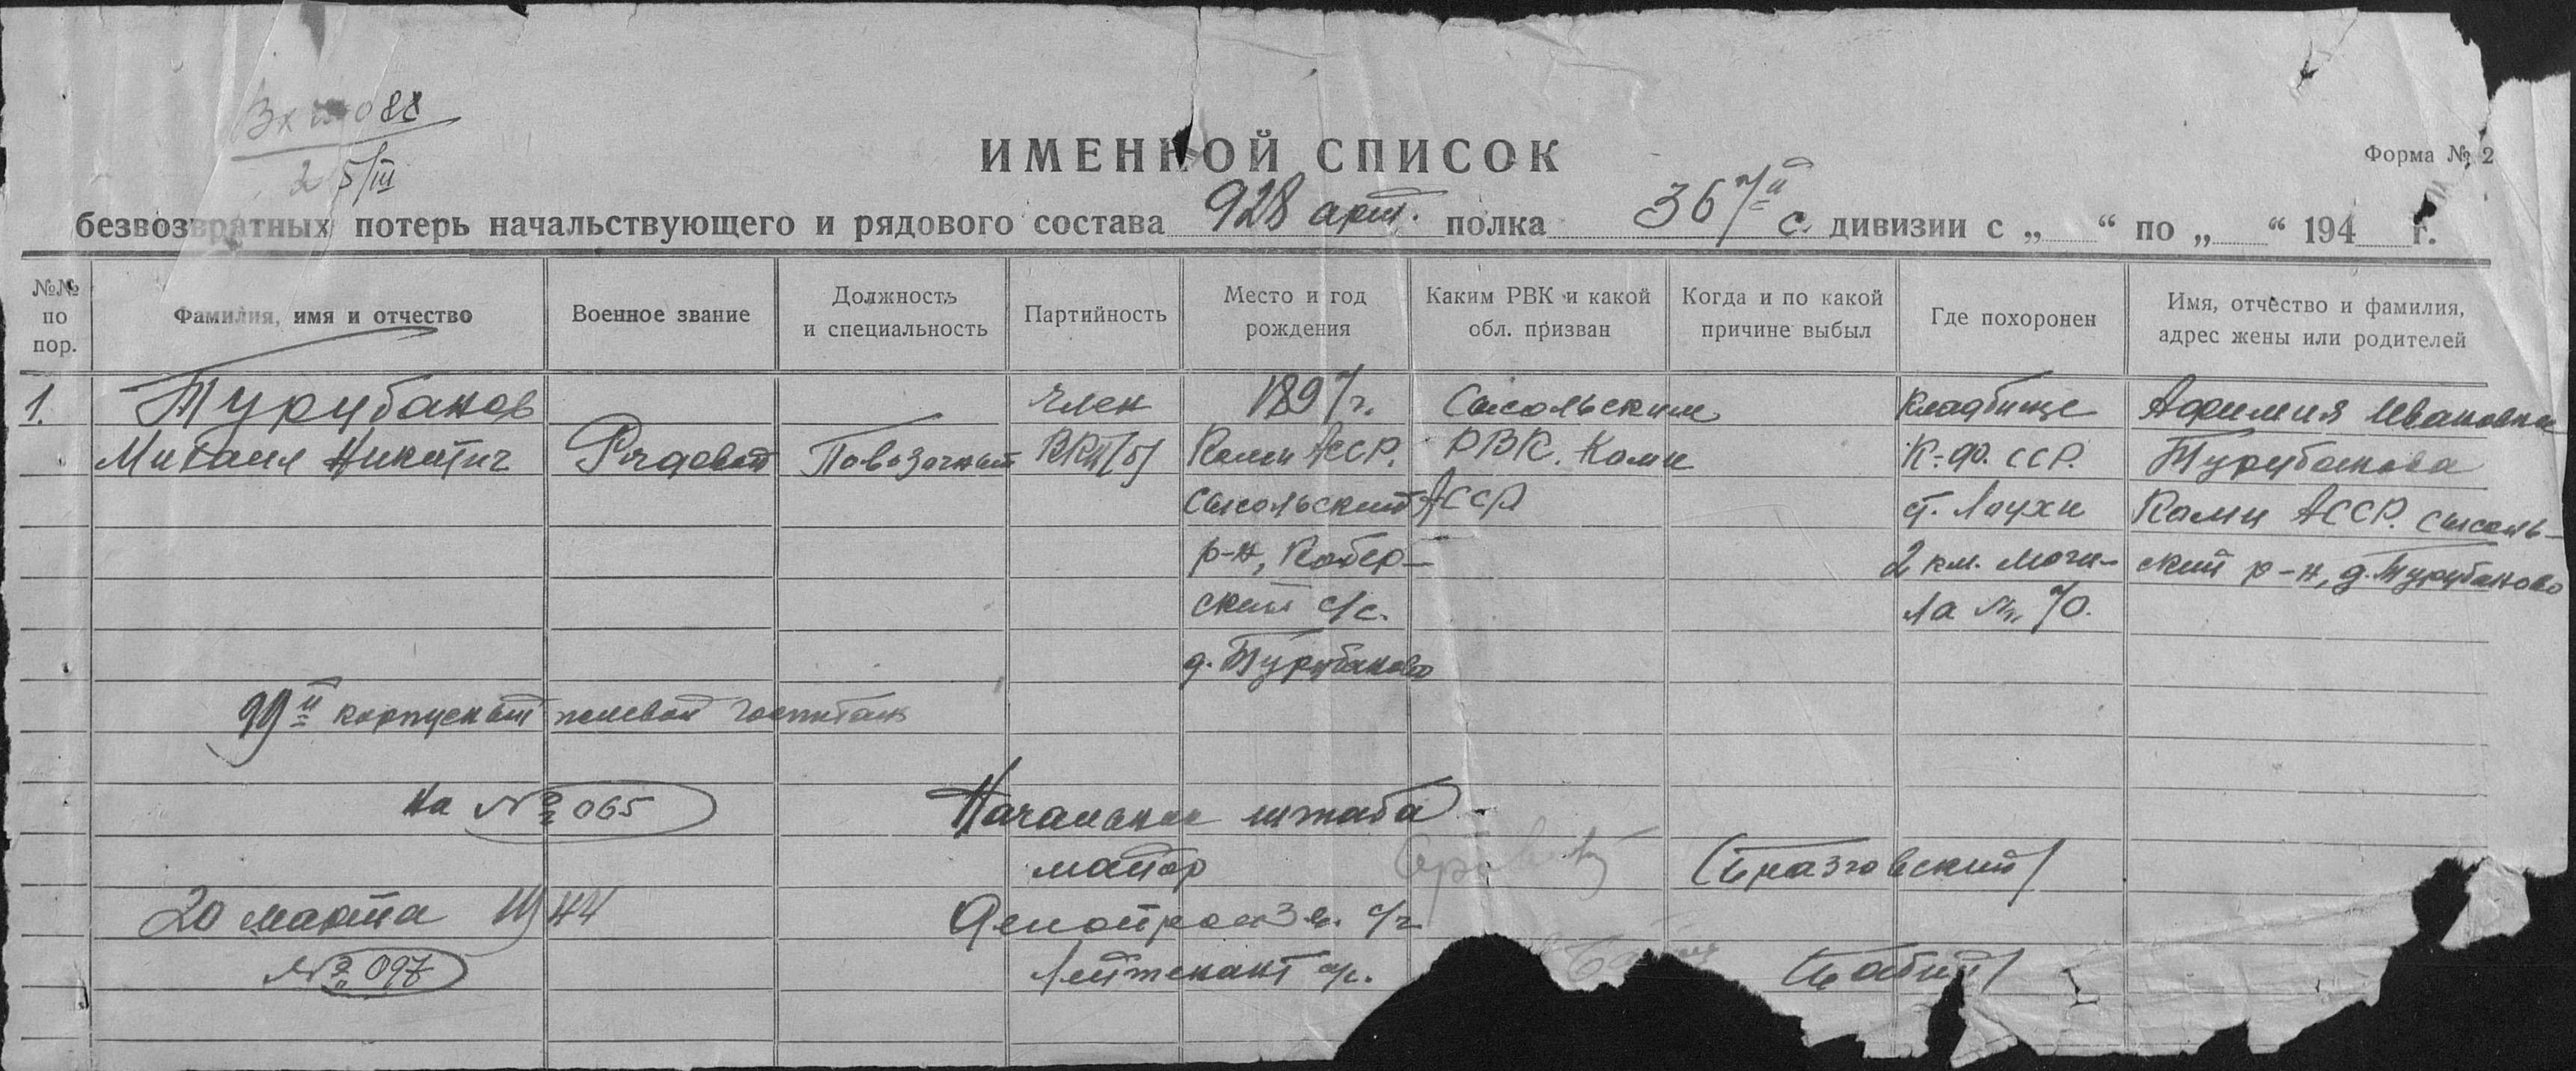 Вх 088
25/III
ИМЕННОЙ СПИСОК
Форма № 2
безвозвратных потерь начальствующего и рядового состава 928 арт. полка 367й с. дивизии с „ “ по „ “ 194 г.
№№ по пор.
Фамилия, имя и отчество
Военное звание
Должность и специальность
Партийность
Место и год рождения
Каким РВК и какой обл. призван
Когда и по какой причине выбыл
Где похоронен
Имя, отчество и фамилия, адрес жены или родителей
1. Турубанов член 1897г. Сысольским Кладбище Афимия Ивановна
Михаил Никитич Рядовой Повозочный ВКП/б/ Коми АССР. РВК. Коми К-Ф. ССР. Турубанова
Сысольский АССР ст. Лоухи Коми АССР. Сысоль-
р-н, 2 км. Моги- ский р-н, д. Турубаново
ский с/с. ла № 70.
д. Турубаново
99й корпусный полевой госпиталь
на № 065 Начальник штаба
майор
20 марта 1944 Делопроизв. с/ч
№ 097 Лейтенант а/с.